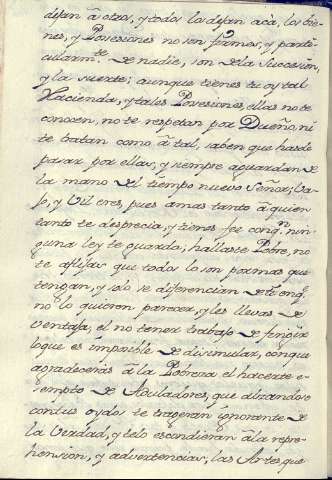 dejan â otros, y todos lo dejan acà, los bie-
nes, y Posesiones no son firmes, y parti-
cularm.te de nadie, son de la Succesion,
y la suerte; aunque tienes tu oy tal
Hacienda, y tales Posesiones, ellas no te
conocen, no te respetan por Dueño, ni
te tratan como â tal, saben que has de
pasar por ellas, y siempre aguardan de
la mano del tiempo nuevo Señor; Ba-
jo, y Vil eres, pues amas tanto â quien
tanto te desprecia, y tienes fee con q.n nin-
guna ley te guarda; hallaste Pobre, no
te aflijas que todos lo son por mas que
tengan, y solo se diferencian de ti en q.e
no lo quieren parecer, y les llevas de
ventaja, el no tener trabajo de fingir
lo que es imposible de disimular, conque
agradecerás â la Pobreza el hacerte e-
sempto de Aduladores, que alzandose
con tus oydos te trageran ignorante de
la Verdad, y te lo escondieran â la repre-
hension, y advertencias; las Artes que